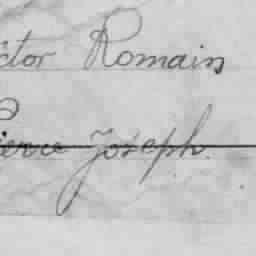 ictor Romain
Pierre Joseph